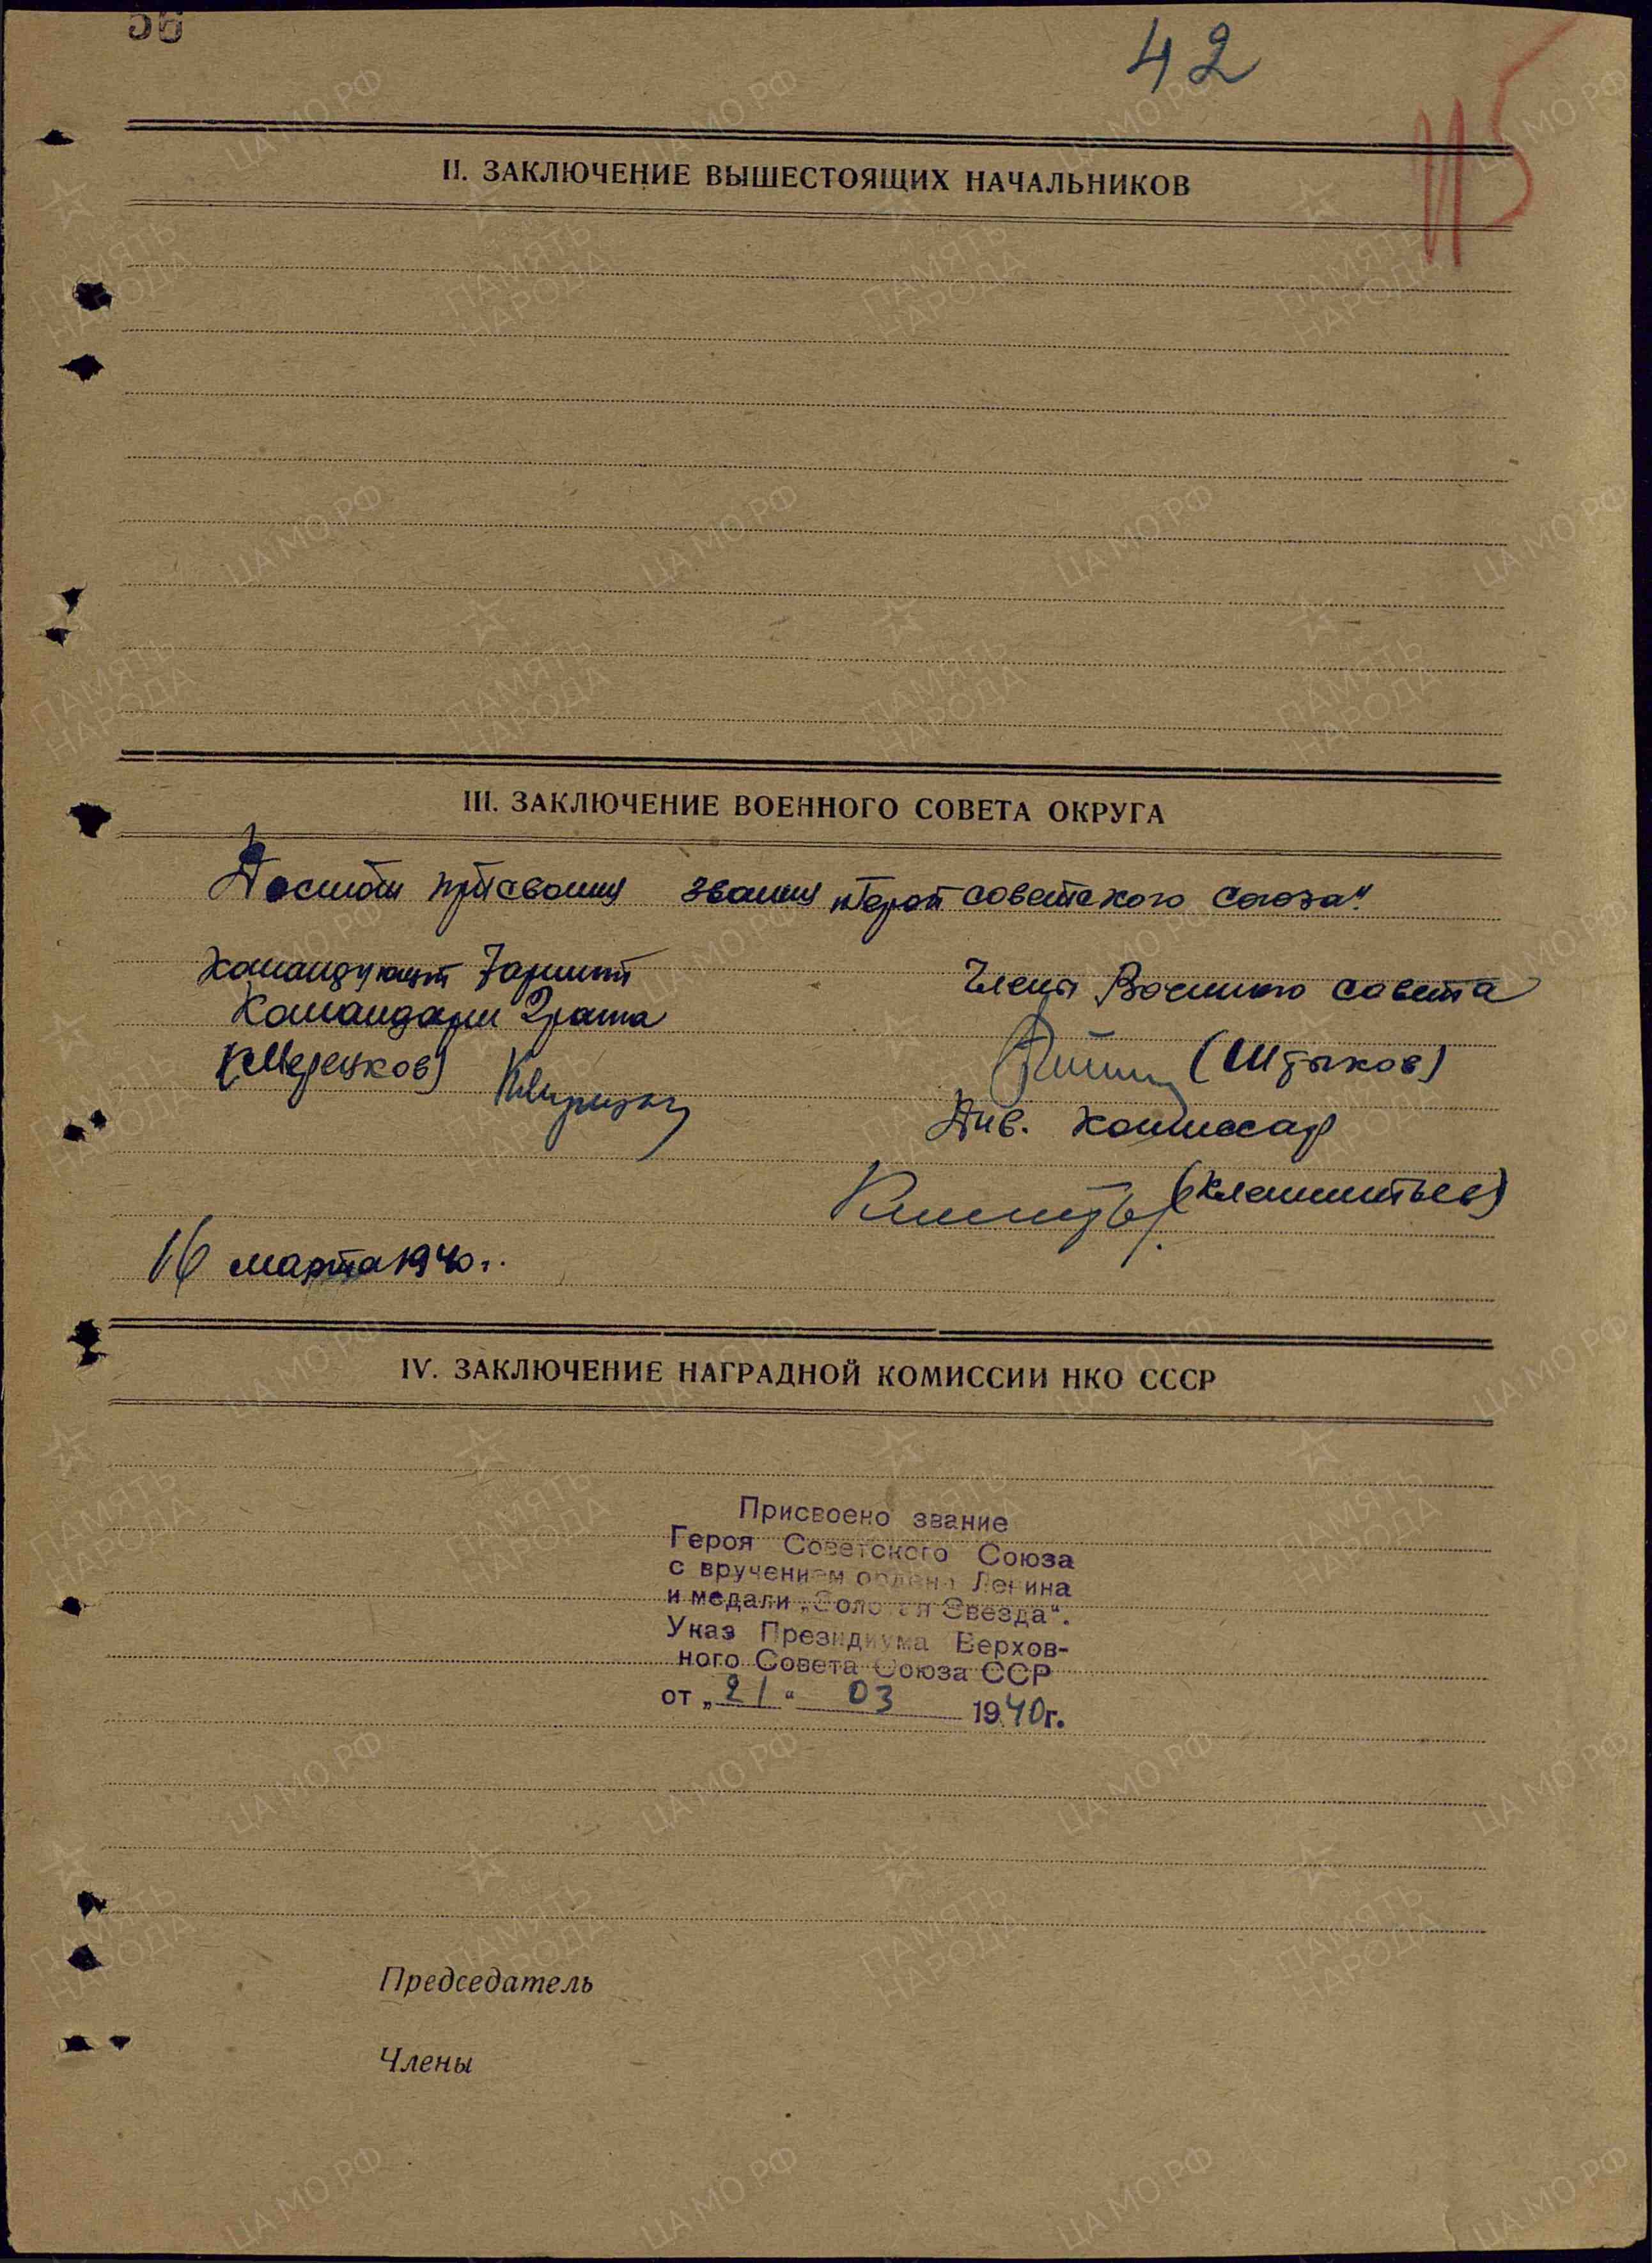 56
42
115
II. ЗАКЛЮЧЕНИЕ ВЫШЕСТОЯЩИХ НАЧАЛЬНИКОВ
III. ЗАКЛЮЧЕНИЕ ВОЕННОГО СОВЕТА ОКРУГА
Достоин присвоения звания „Герой советского союза".
Командующий 7 армией
Командарм 2 ранга
(К Мерецков)
Члены Военного совета
(Штыков)
Див. комиссар
(Клементьев)
16 марта 1940 г.
IV. ЗАКЛЮЧЕНИЕ НАГРАДНОЙ КОМИССИИ НКО СССР
Присвоено звание
Героя Советского Союза
с вручением ордена Ленина
и медали „Золотая Звезда".
Указ Президиума Верхов-
ного Совета Союза ССР
от „21" 03 1940г.
Председатель
Члены
ЦА МО РФ
ПАМЯТЬ
НАРОДА